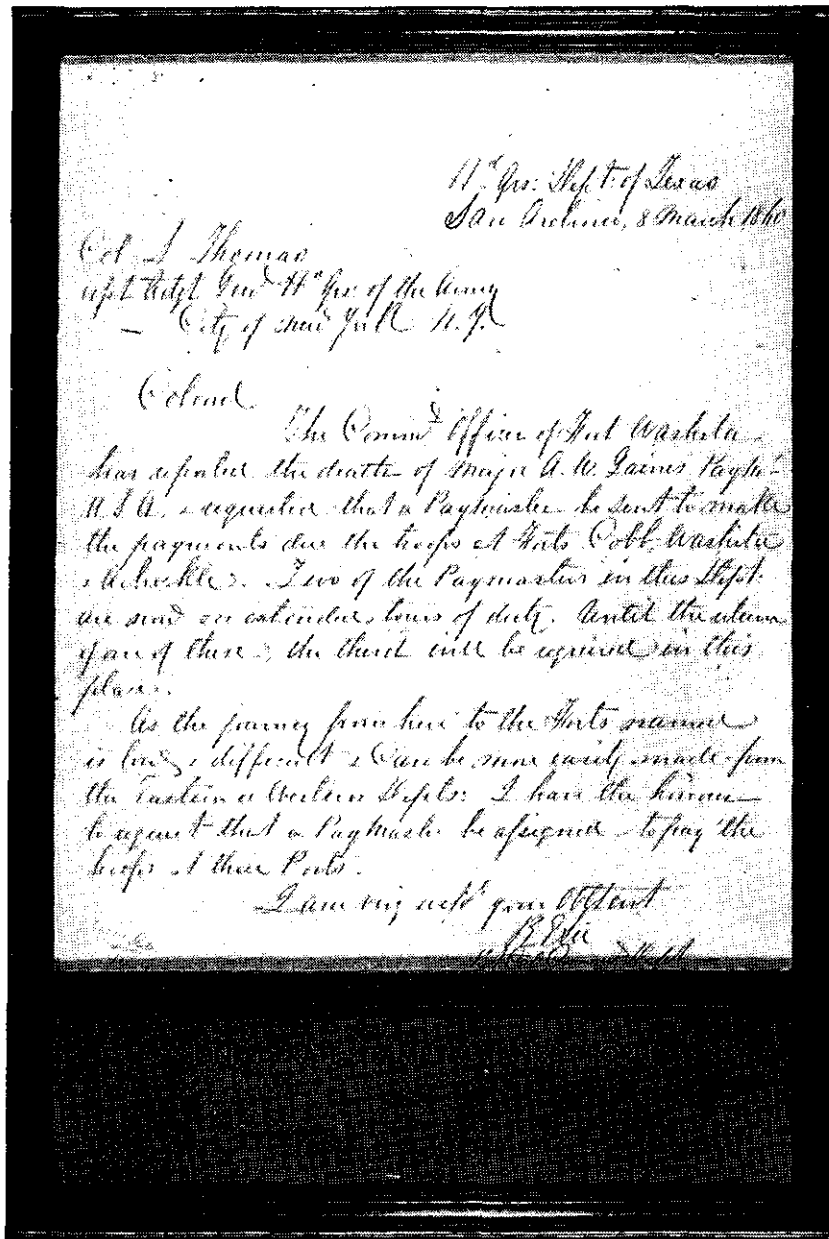 Hd Qrs: Dept: of Texas
San Antonio, 8 March 1860
Col. L Thomas
Asst Adjt Genl Hd Qrs: of the Army
— City of New York N. Y.
Colonel
The Commd Officer of Fort Washita
has reported the death of Major A. W. Gaines Paymr
U. S. A. & requested that a Paymaster be sent to make
the payments due the troops at Forts Cobb, Washita
& Arbuckle. Two of the Paymasters in this Dept:
are now on extended tours of duty. Until the return
of one of these, the third will be required in this
place.
As the journey from here to the Forts named
is long & difficult & can be more easily made from
the Eastern or Western Depts: I have the honour
to request that a Paymaster be assigned to pay the
troops at these Posts.
I am very respy your Obt Servt
R E Lee